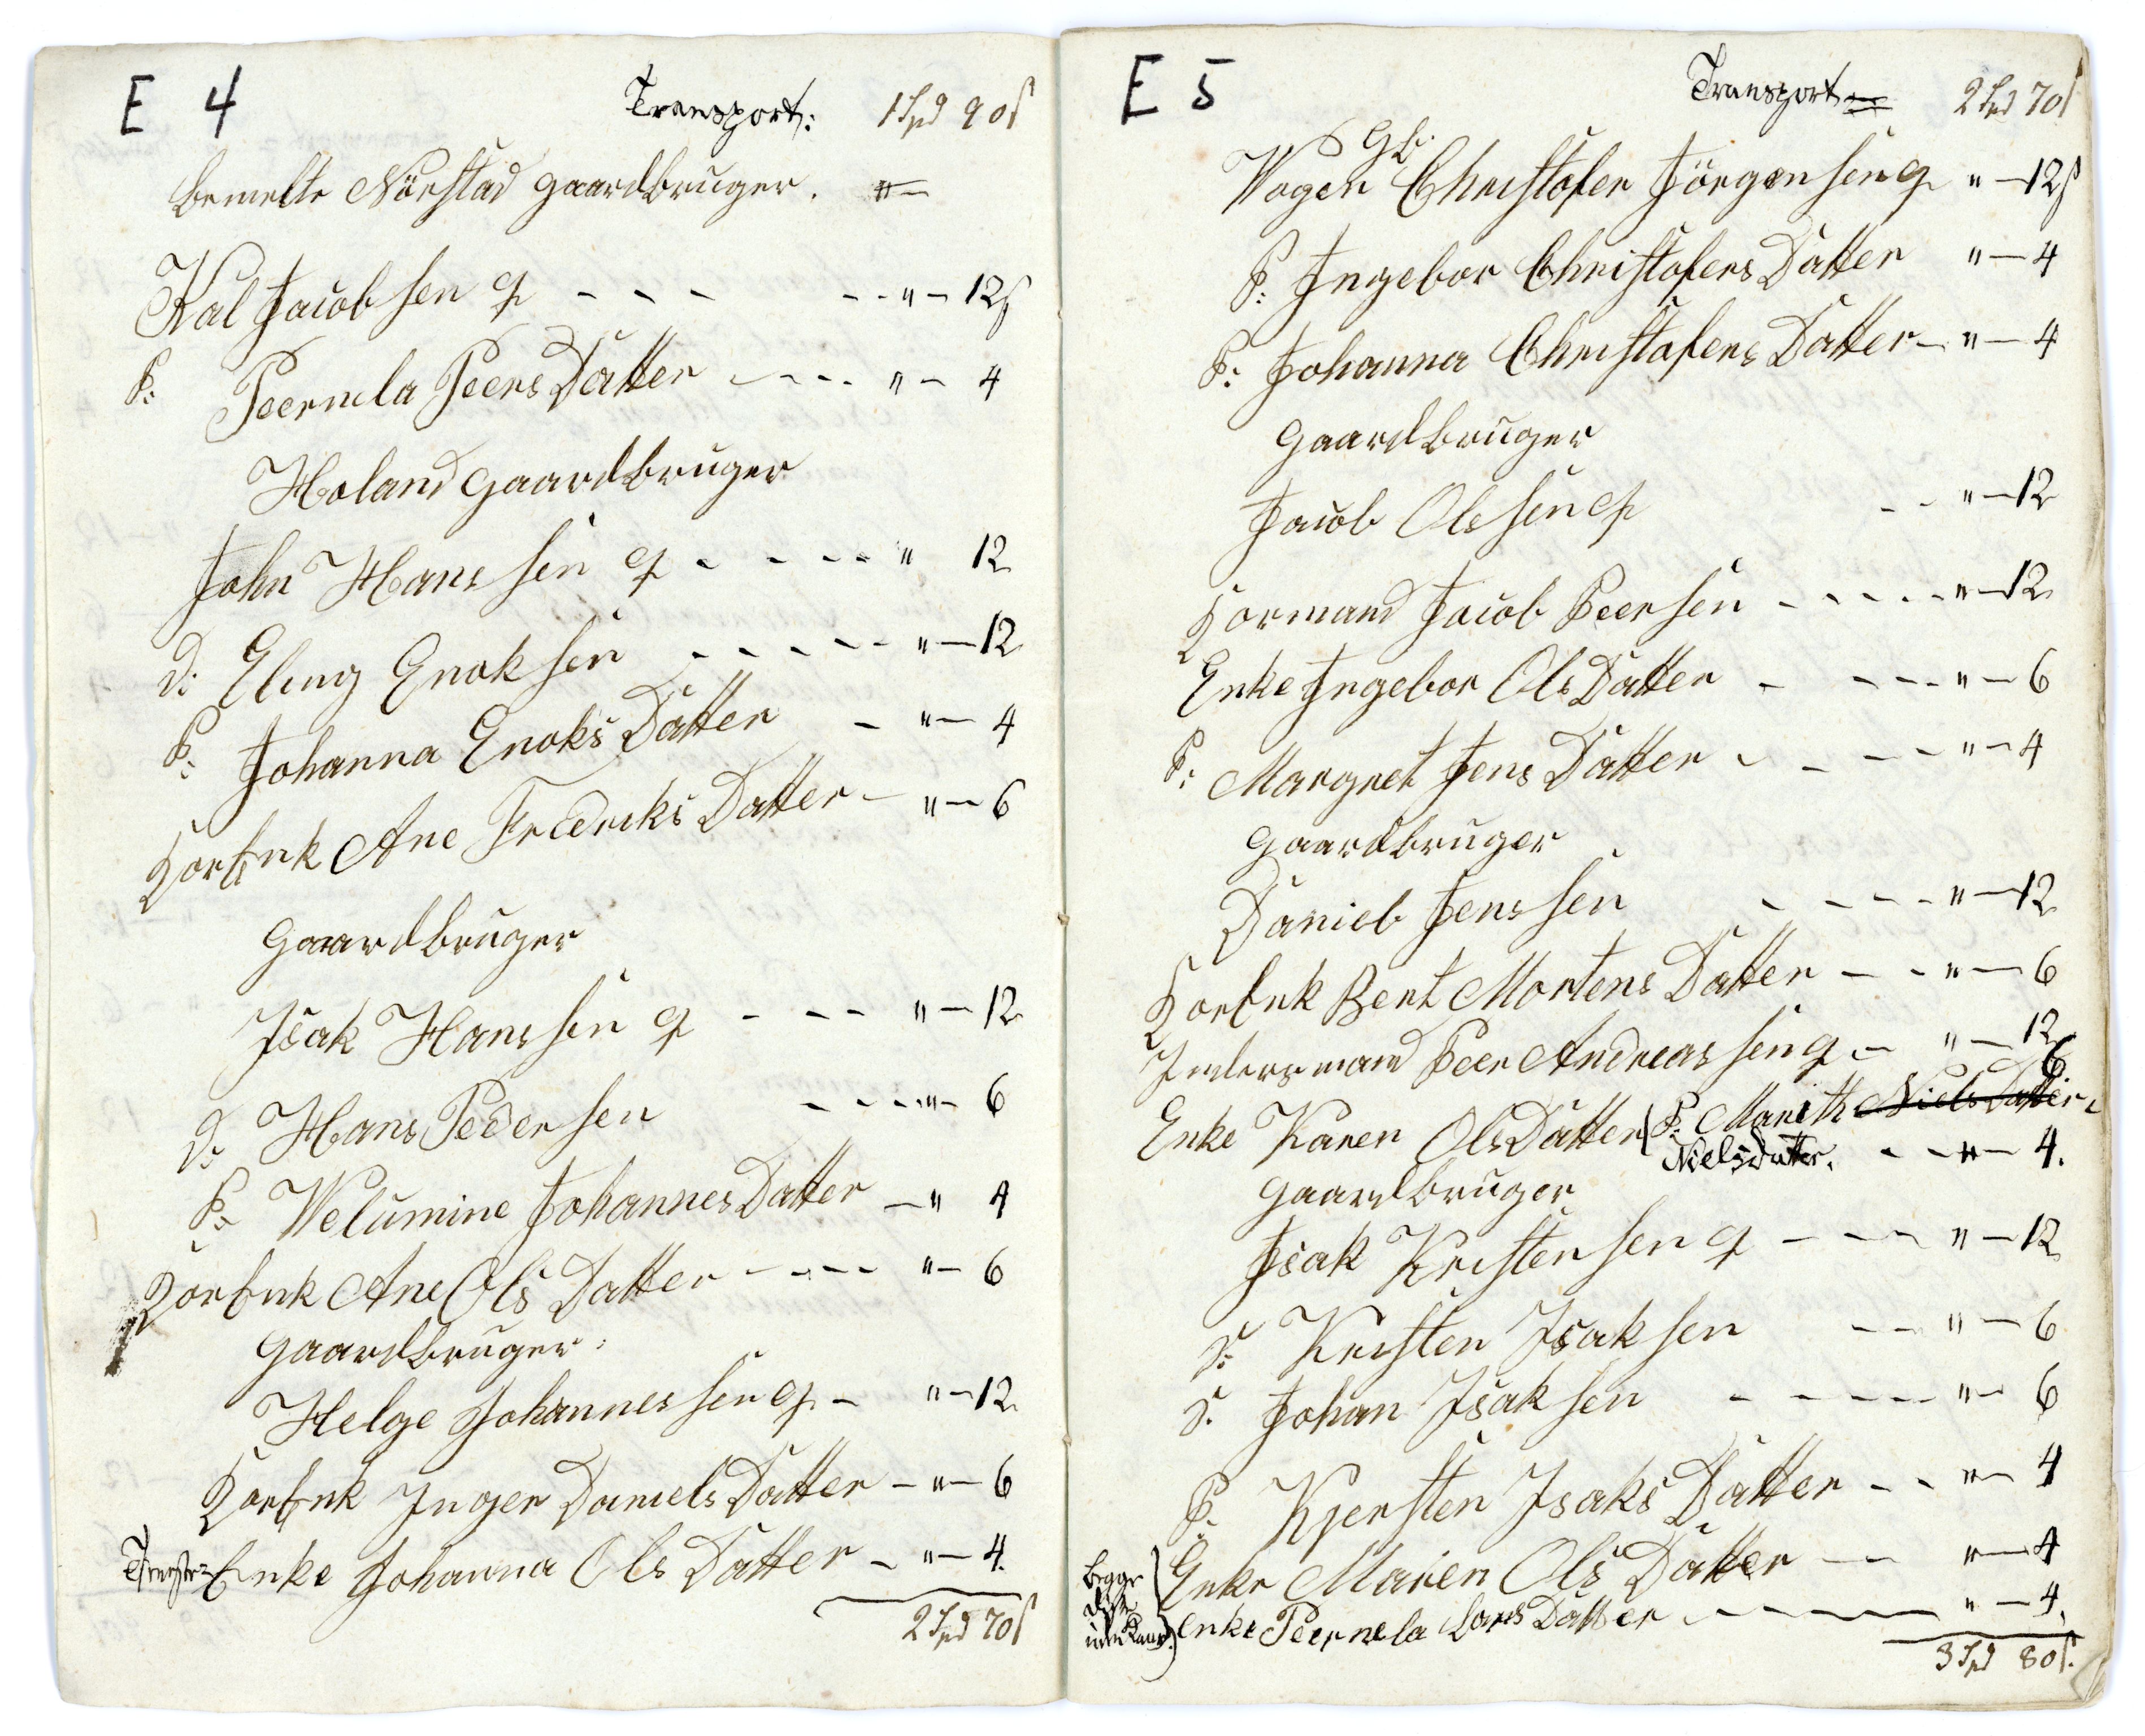 E 4
Transport: 1 Spd 90 ſ
bemelte Nörstad gaardbruger. "—
Kal Jacobsen g - - - - - " - 12 ſ
P: Peernela Peers Datter - - - - " - 4
Holand gaardbruger
John Hanssen g - - - - - " 12
D: Eling Enoksen - - - - - " - 12
P: Johanna Enoks Datter - " - 4
Ane Fredriks Datter - " - 6
gaardbruger
Isak Hanssen g - - - - " - 12
D: Hans Pedersen - - - " - 6
P: Welumine Johannes Datter - " 4
Ane Ols Datter - - - - " - 6
gaardbruger.
Helge Johannessen g - " - 12
Inger Daniels Datter - " - 6
Enke Johanna Ols Datter - " - 4.
2 Spd 70 ſ
E 5
Transport 2 Spd 70 ſ
Gb.
Wogen Christofer Jörgensen g " - 12 ſ
P: Ingebor Christofers Datter " - 4
P: Johanna Christofers Datter - " - 4
gaardbruger
Jacob Olssen g - - " - 12
Kormand Jacob Peersen - - - - - " - 12
Enke Ingebor Ols Datter - - - - " - 6
P: Margret Jens Datter - - - - " - 4
gaardbruger
Daniel Jenssen - - - - - " - 12
Bert Mortens Datter - - " - 6
Indersmand Peer Andreassen g - " - 12
6
Enke Karen Ols Datter P: Marith Niels Datter
Nielsdatter. - - " - 4.
gaardbruger
Isak Kristensen g - - - " - 12
S: Kristen Isaksen - - " - 6
S. Johan Isaksen - - - - - " - 6
P. Kjersten Isaks Datter - - " - 4
Begge Enke Maren Ols Datter - - " - 4
disse uden Kaar. Enke Peernela Lars Datter - - - - " - 4.
3 Spd 80 ſ.